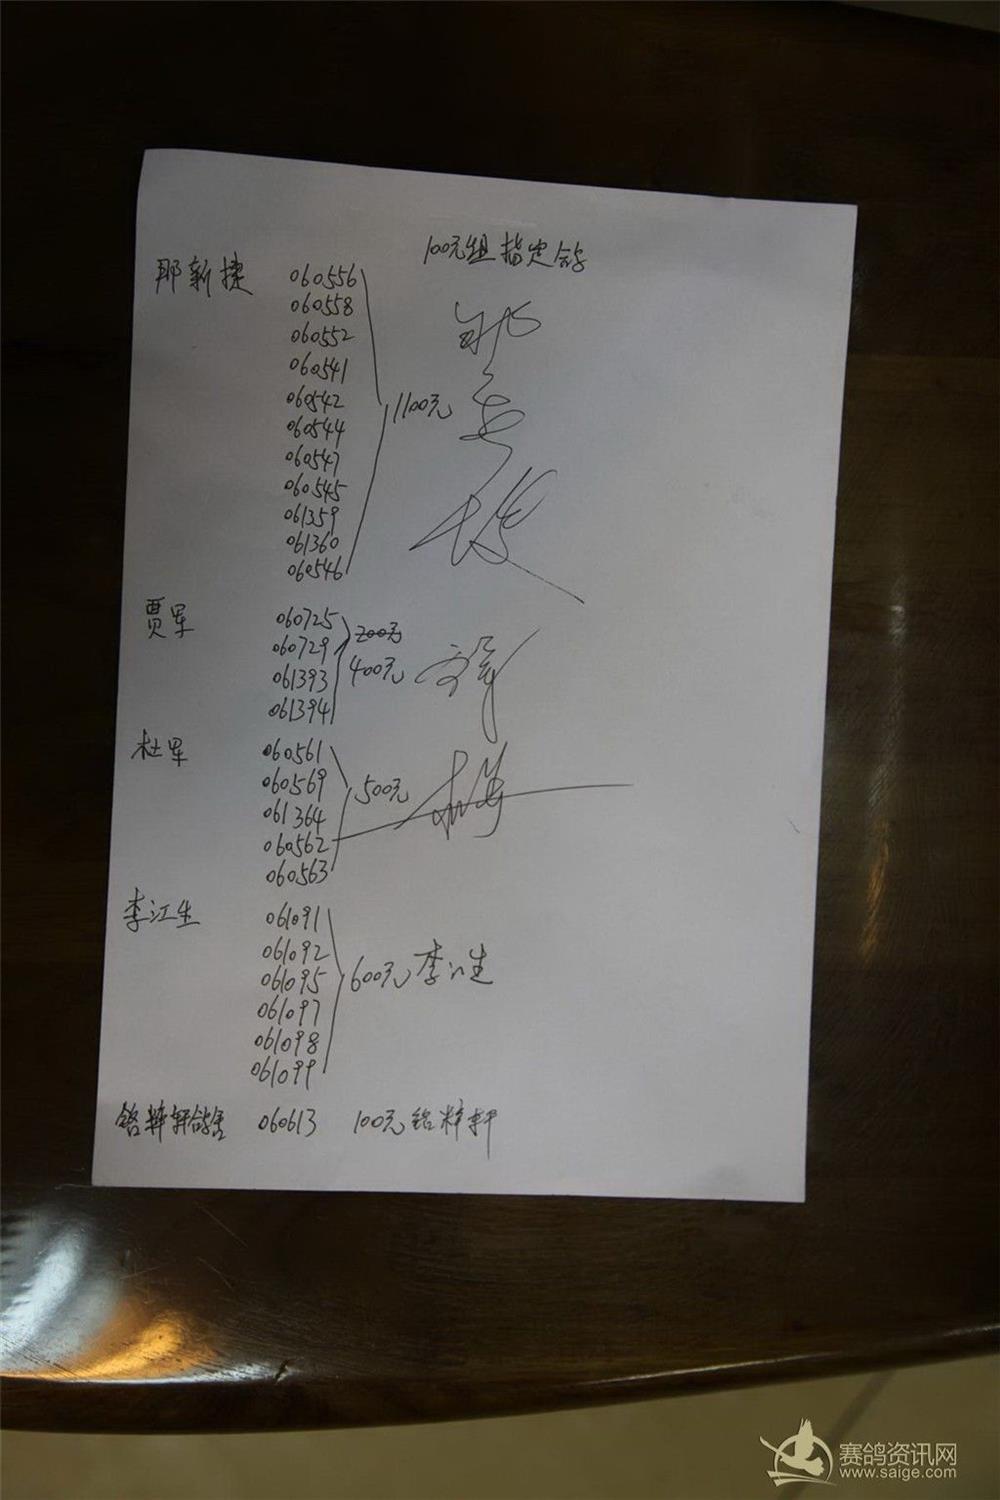 100元组指定鸽
那新捷 060556
060558
060552
060541
060542
060544 1100元
060547
060545
061359
061360
060546
贾军 060725
060729 200元
061393 400元
061394
杜军 060561
060569 500元
061364
060562
060563
李江生 061091
061092
061095 600元 李江生
061097
061098
061099
铭粹轩鸽舍 060613 100元 铭粹轩
赛鸽资讯网
www.saige.com